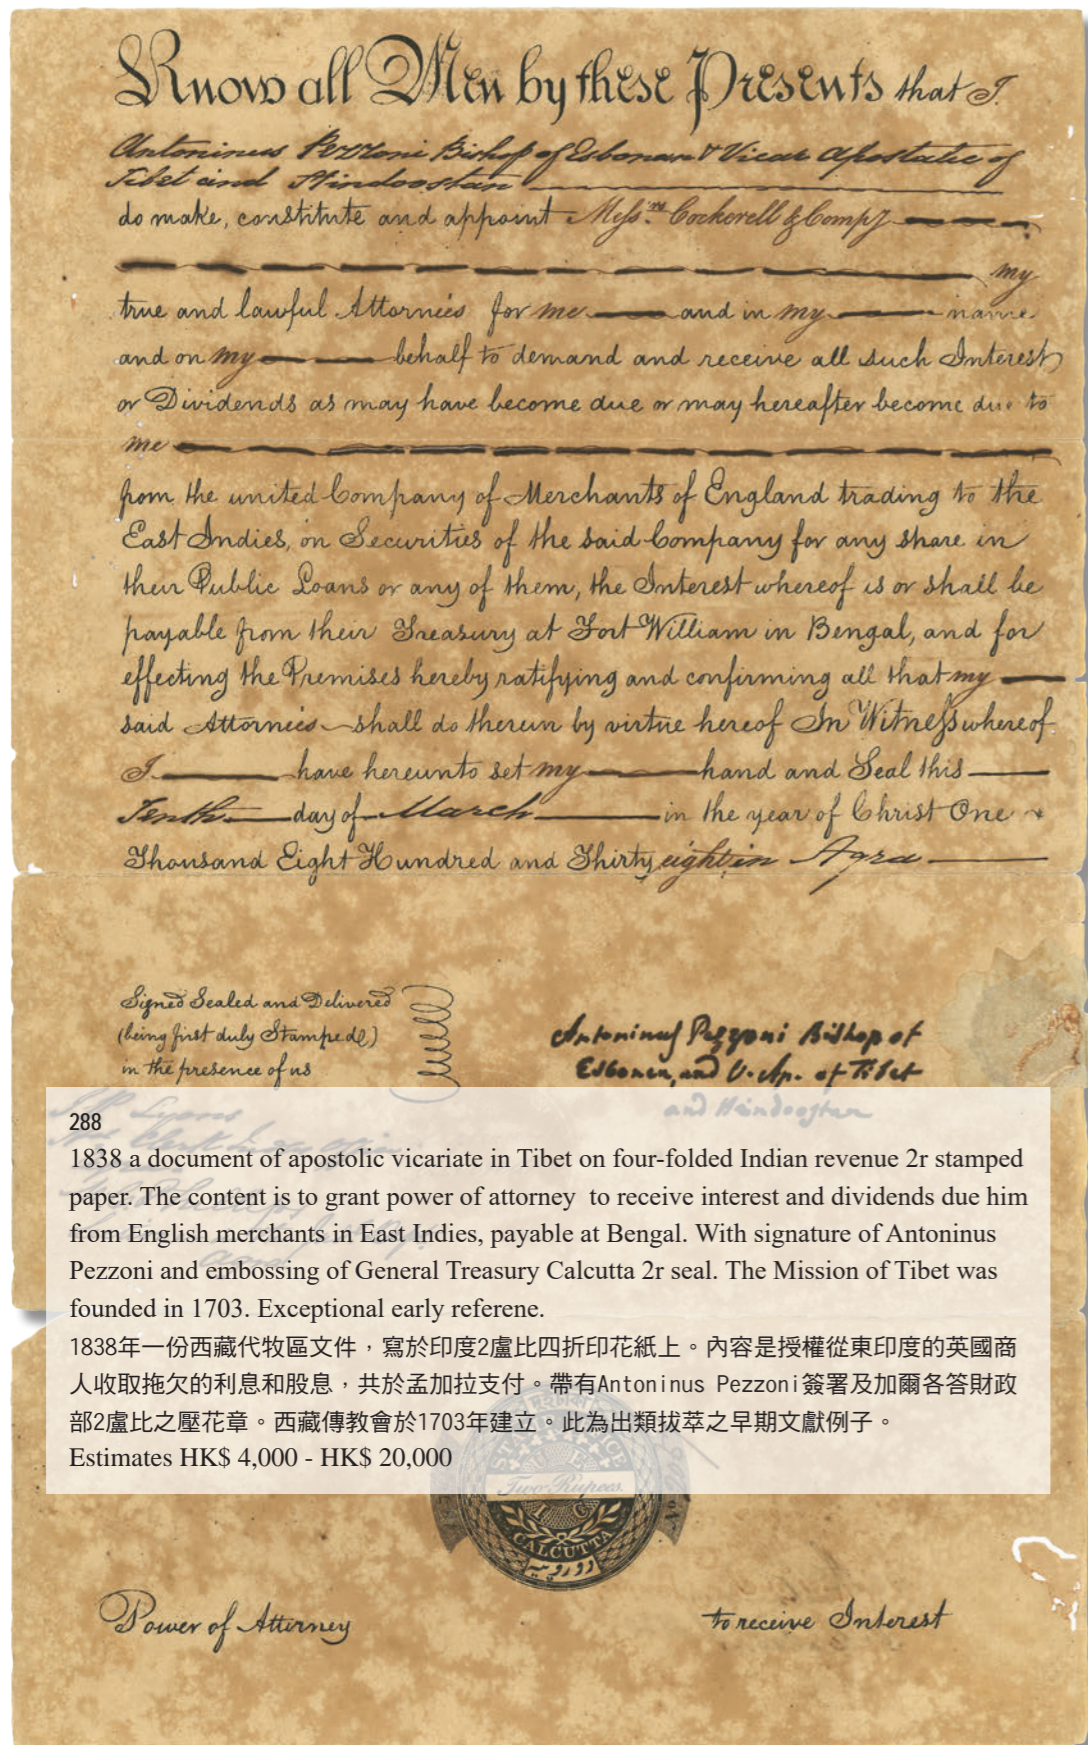 Know all Men by these Presents that I
Antoninus Pezzoni Bishop of Esbonan & Vicar Apostolic of
Tibet and Hindoostan
do make, constitute and appoint Messrs. Cockerell & Compy
my
true and lawful Attornies for me and in my name
and on my behalf to demand and receive all such Interest
or Dividends as may have become due or may hereafter become due to
me
from the united Company of Merchants of England trading to the
East Indies, on Securities of the said Company for any share in
their Public Loans or any of them, the Interest whereof is or shall be
payable from their Treasury at Fort William in Bengal, and for
effecting the Premises hereby ratifying and confirming all that my
said Attornies shall do therein by virtue hereof In Witness whereof
I have hereunto set my hand and Seal this
Tenth day of March in the year of Christ One
Thousand Eight Hundred and Thirty eight in Agra
Signed Sealed and Delivered
(being first duly Stamped)
in the presence of us
Antoninus Pezzoni Bishop of
Esbonen, and V. Ap. of Tibet
and Hindoostan
Lyons
288
1838 a document of apostolic vicariate in Tibet on four-folded Indian revenue 2r stamped
paper. The content is to grant power of attorney to receive interest and dividends due him
from English merchants in East Indies, payable at Bengal. With signature of Antoninus
Pezzoni and embossing of General Treasury Calcutta 2r seal. The Mission of Tibet was
founded in 1703. Exceptional early referene.
1838年一份西藏代牧區文件，寫於印度2盧比四折印花紙上。內容是授權從東印度的英國商
人收取拖欠的利息和股息，共於孟加拉支付。帶有Antoninus Pezzoni簽署及加爾各答財政
部2盧比之壓花章。西藏傳教會於1703年建立。此為出類拔萃之早期文獻例子。
Estimates HK$ 4,000 - HK$ 20,000
Two Rupees
CALCUTTA
دوروپیہ
Power of Attorney
to receive Interest